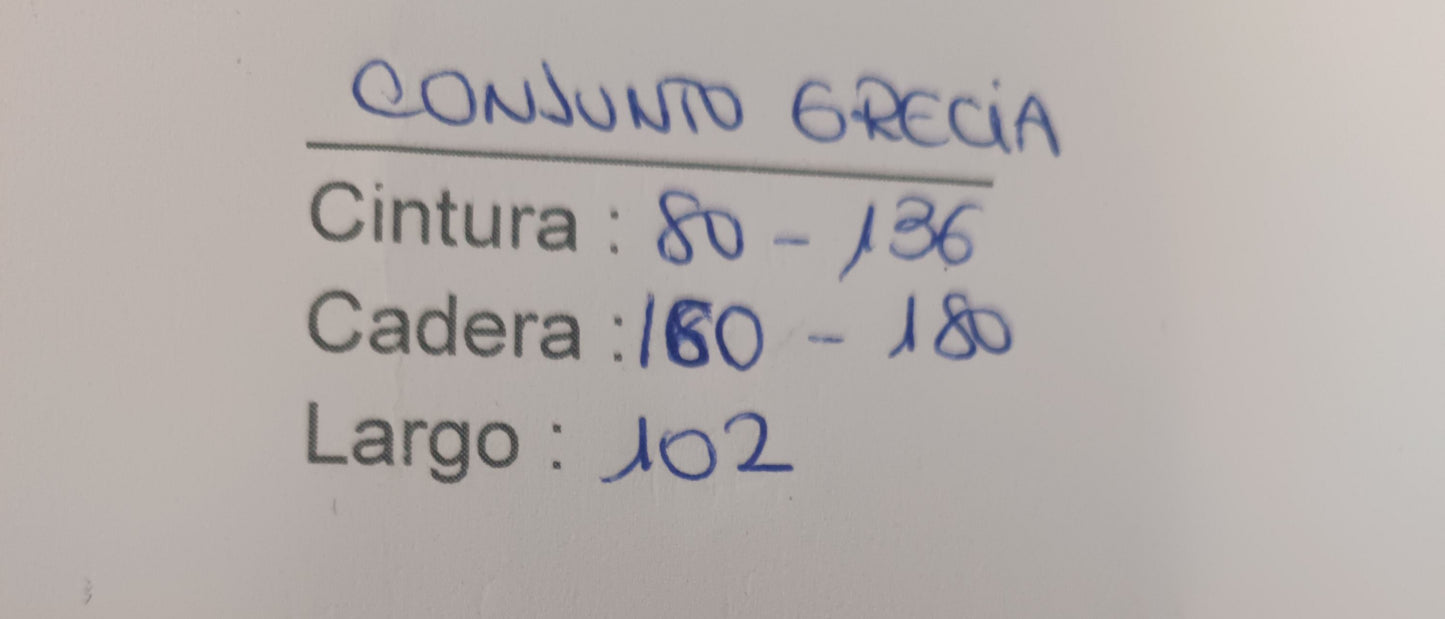 CONJUNTO GRECIA
Cintura : 80 - 136
Cadera : 160 - 180
Largo : 102